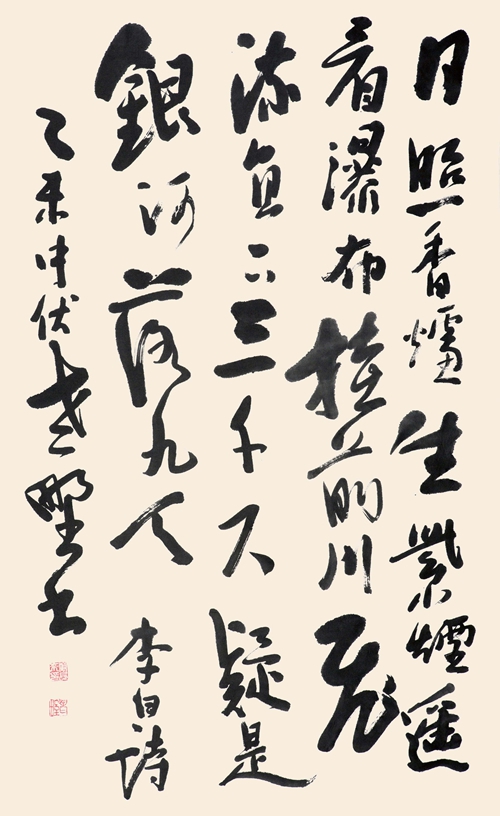 日照香爐生紫煙遥
看瀑布挂前川飛
流直下三千尺疑是
銀河落九天 李白詩
乙未中伏书